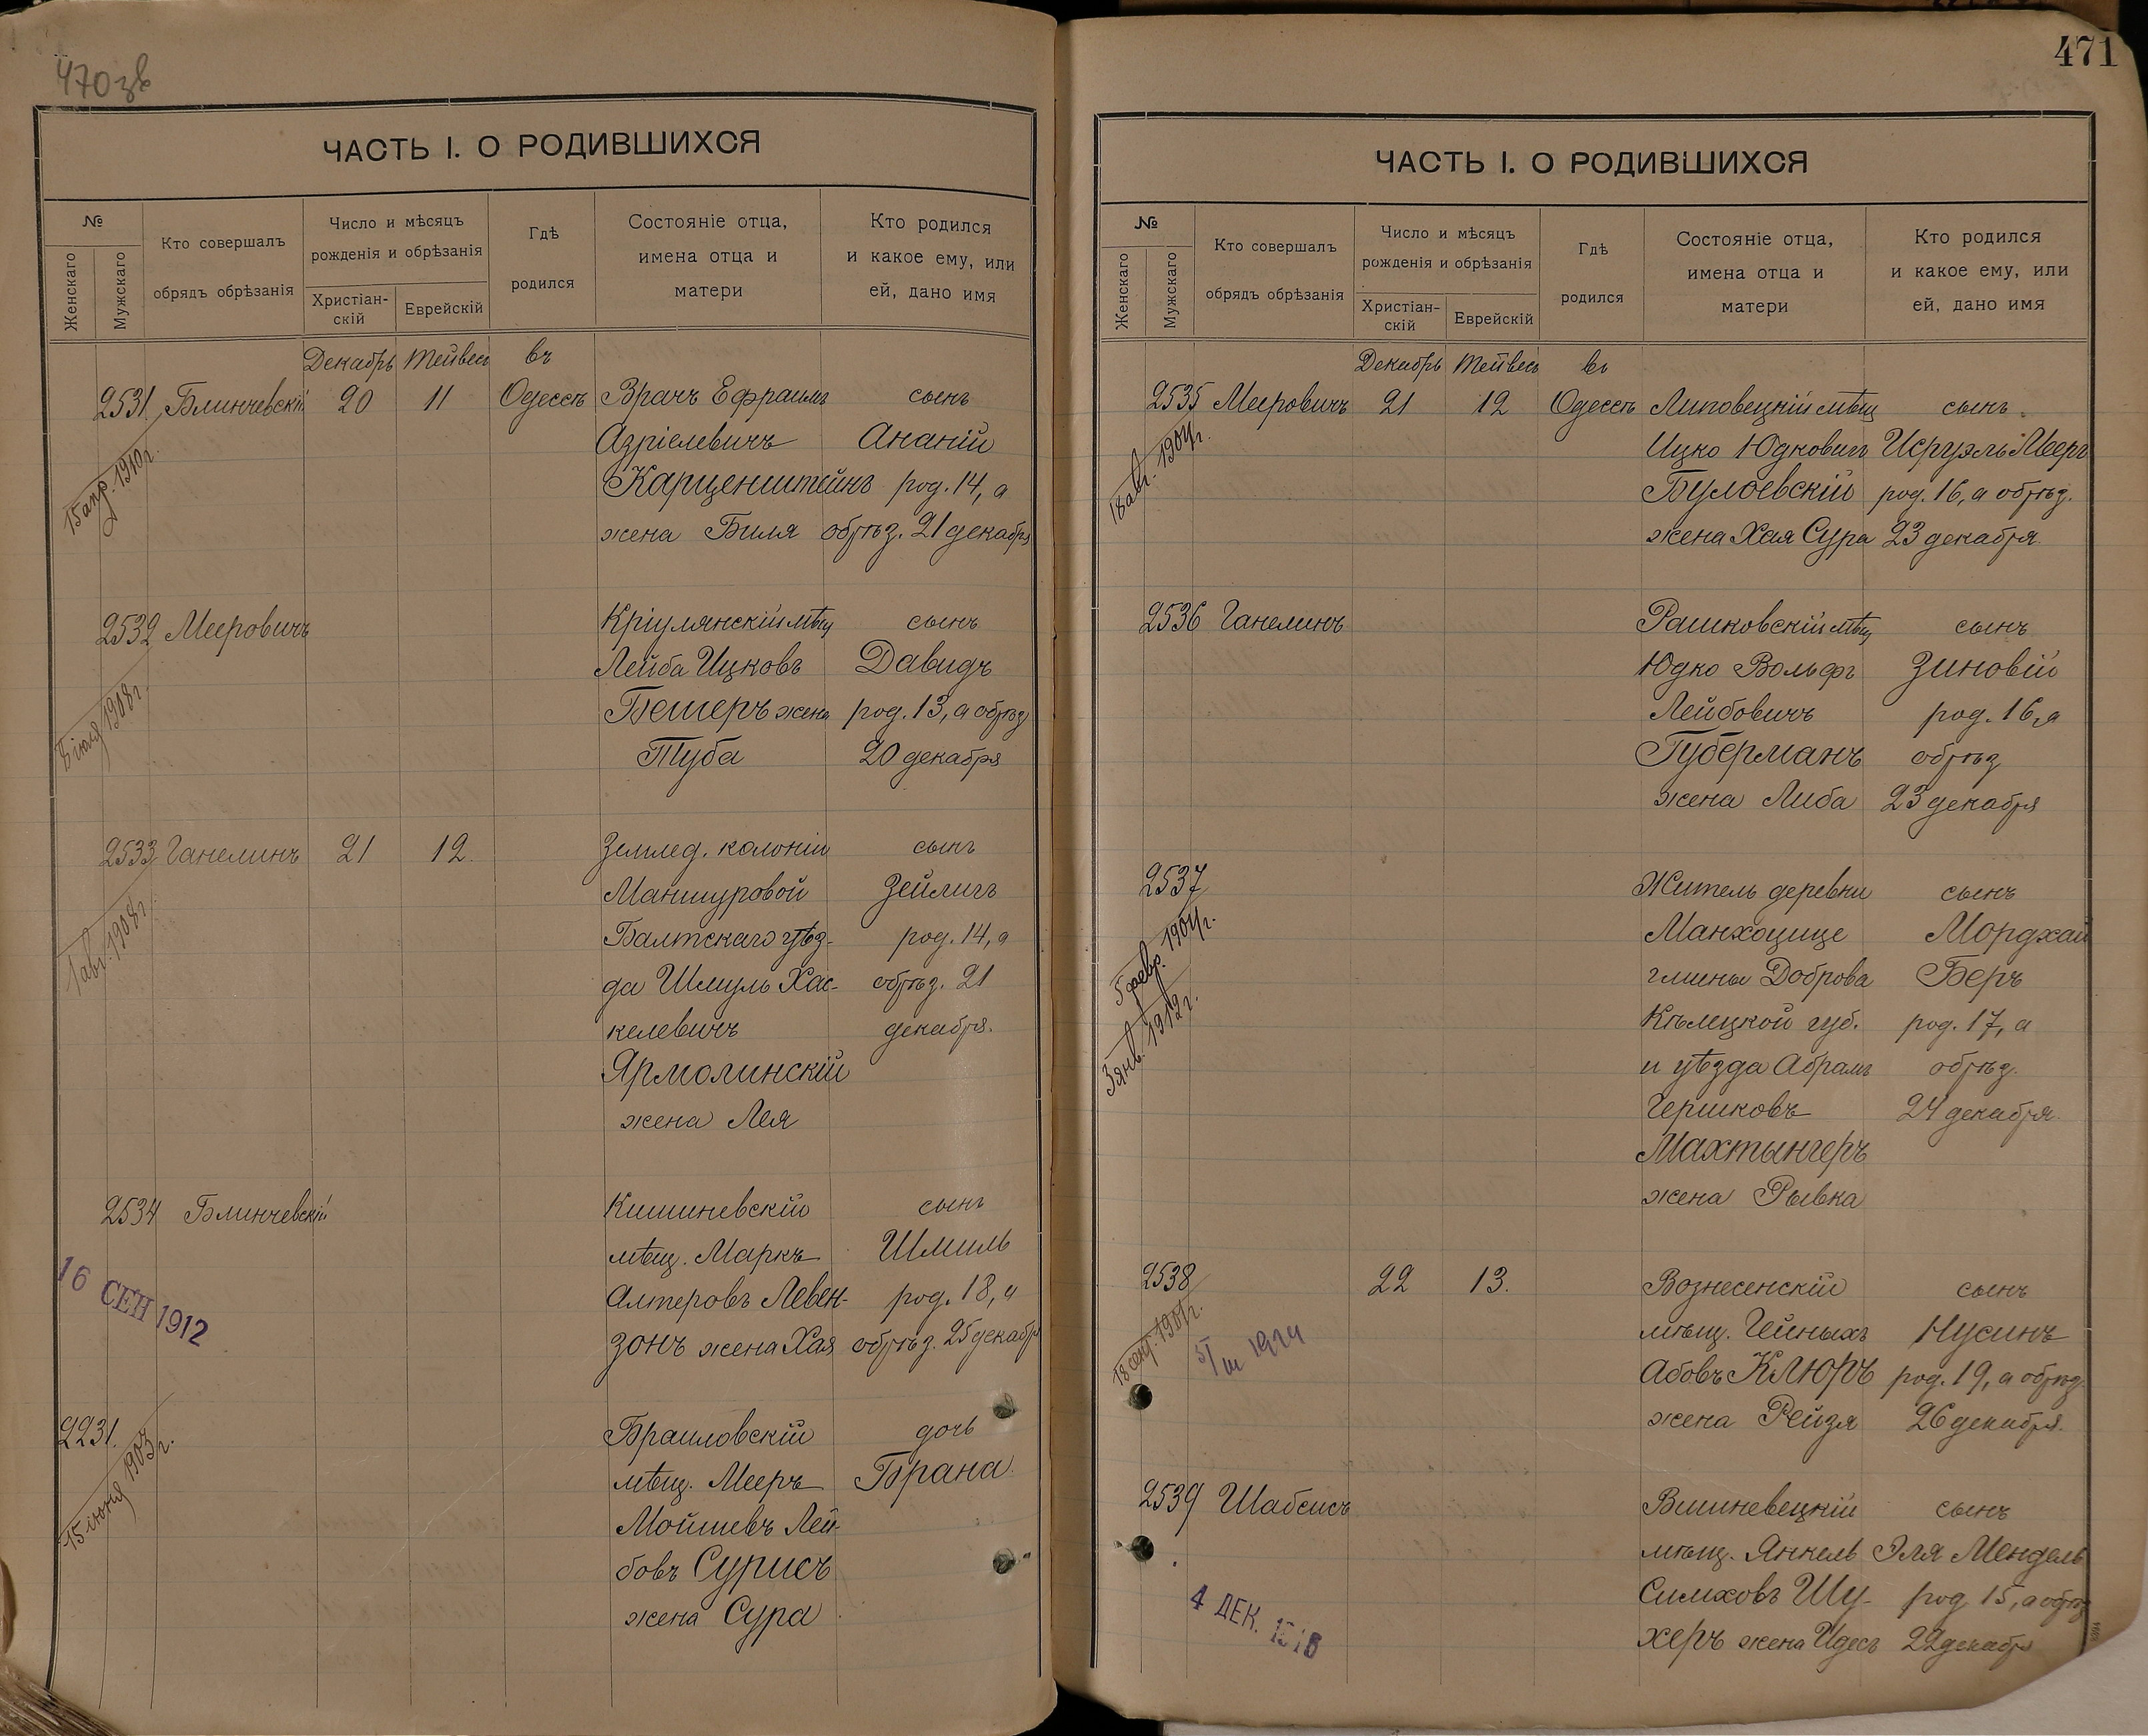 470 зв
ЧАСТЬ I. О РОДИВШИХСЯ
№
Женскаго
Мужскаго
Кто совершалъ
обрядъ обрѣзанія
Число и мѣсяцъ
рожденія и обрѣзанія
Христіан-
скій
Еврейскій
Гдѣ
родился
Состояніе отца,
имена отца и
матери
Кто родился
и какое ему, или
ей, дано имя
Декабрь Тейвесъ въ
2531 Блинчевскій 20 11 Одессѣ Врачъ Ефраимъ сынъ
Азріелевичъ Ананій
Карценштейнъ род. 14, а
жена Биля обрѣз. 21 декабря
15 апр. 1910 г.
2532 Мееровичъ Кріулянскій мѣщ сынъ
Лейба Ицковъ Давидъ
Бешеръ жена род. 13, а обрѣз
Туба 20 декабря
8 іюля 1908 г.
2533 Ганелинъ 21 12. Землед. колоніи сынъ
Маншуровой Зейлигъ
Балтскаго уѣз- род. 14, а
да Шмуль Хас- обрѣз. 21
келевичъ декабря.
Ярмолинскій
жена Лея
1 авг. 1908 г.
2534 Блинчевскій Кишиневскій сынъ
мѣщ. Маркъ Шмиль
Алтеровъ Левен- род. 18, а
зонъ жена Хая обрѣз. 25 декабр
16 СЕН 1912
2231. Браиловскій дочь
мѣщ. Мееръ Брана
Мойшевъ Лей-
бовъ Сурисъ
жена Сура
15 іюня 1903 г.
471
ЧАСТЬ I. О РОДИВШИХСЯ
№
Женскаго
Мужскаго
Кто совершалъ
обрядъ обрѣзанія
Число и мѣсяцъ
рожденія и обрѣзанія
Христіан-
скій
Еврейскій
Гдѣ
родился
Состояніе отца,
имена отца и
матери
Кто родился
и какое ему, или
ей, дано имя
Декабрь Тейвесъ въ
2535 Мееровичъ 21 12 Одессѣ Липовецкій мѣщ сынъ
Ицко Юдковичъ Исруэль Мееръ
Булоевскій род. 16, а обрѣз.
жена Хая Сура 23 декабря
18 авг. 1904 г.
2536 Ганелинъ Рашковскій мѣщ сынъ
Юдко Вольфъ Зиновій
Лейбовичъ род. 16, а
Губерманъ обрѣз
жена Либа 23 декабря
2537 Житель деревни сынъ
Манхоцице Мордхай
гмины Доброва Беръ
Кѣлецкой губ. род. 17, а
и уѣзда Абрамъ обрѣз.
Гершковъ 24 декабря.
Махтынгеръ
жена Рывка
5 февр. 1904 г.
3 янв. 1912 г.
2538 22 13. Вознесенскій сынъ
мѣщ. Гейныхъ Нусинъ
Абовъ Клюръ род. 19, а обрѣз.
жена Рейзя 26 декабря.
5/III 1924
2539 Шабсисъ Вишневецкій сынъ
мѣщ. Янкель Эля Мендель
Симховъ Шу- род 15, а обрѣз
херъ жена Идесъ 22 декабр
4 ДЕК.